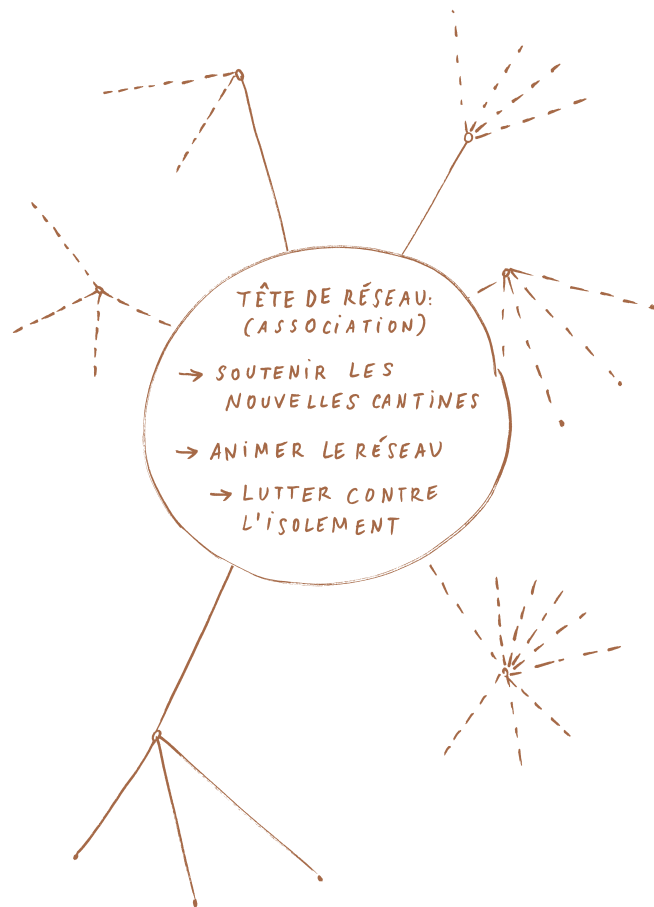 TÊTE DE RÉSEAU:
(ASSOCiATiON)
→ SOUTENiR LES
NOUVELLES CANTINES
→ ANiMER LE RÉSEAU
→ LUTTER CONTRE
L'iSOLEMENT